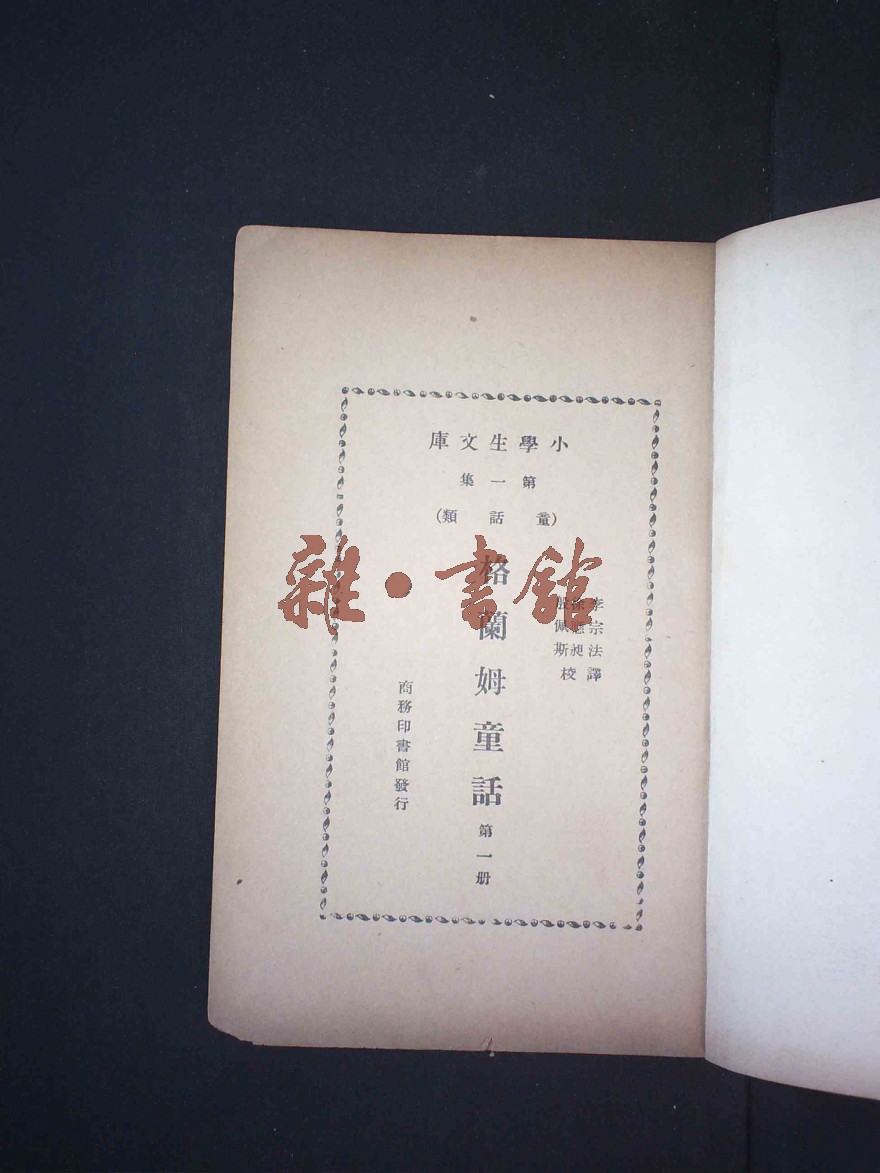 小學生文庫
第一集
(童話類)
李宗法譯
徐應昶
殷佩斯
校
格蘭姆童話 第一册
商務印書館發行
雜·書館